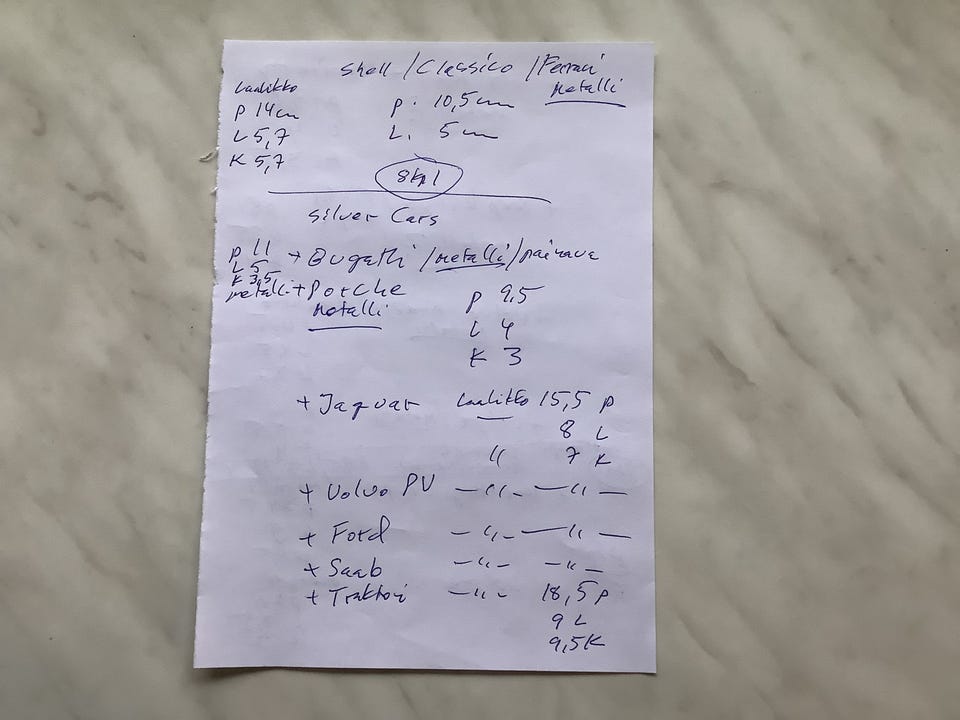 Shell / Classico / Ferrari
Metalli
Laatikko
P 14cm
L 5,7
K 5,7
P. 10,5cm
L. 5cm
8kpl
Silver Cars
P 11
L 5
K 3,5
metalli
+ Bugatti / metalli /
+ Porche
Metalli
P 9,5
L 4
K 3
+ Jaquar Laatikko 15,5 P
8 L
" 7 K
+ Volvo PV — " — — " —
+ Ford — " — — " —
+ Saab — " — — " —
+ Traktori — " — 18,5 P
9 L
9,5 K